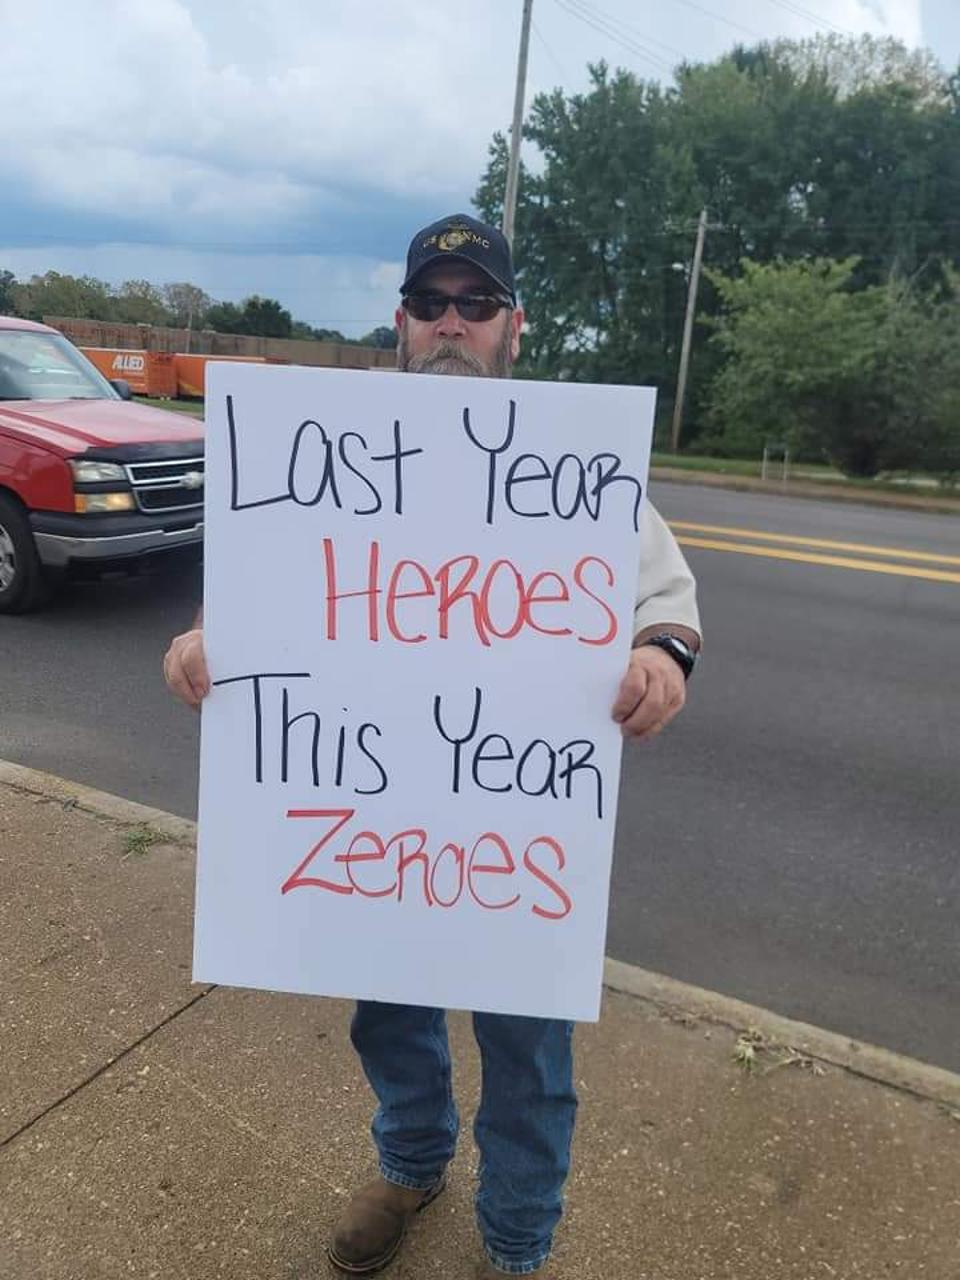 USMC
ALLIED
Last Year
Heroes
This Year
Zeroes